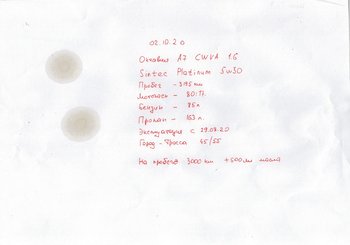 02.10.20
Октавия А7 CWVA 1.6
Sintec Platinum 5w30
Пробег - 3195 км
Моточасы - 80:17
Бензин - 85л
Пропан - 153 л.
Эксплуатация с 29.08.20
Город - Трасса 45/55
На пробеге 3000 км +500 мл масла